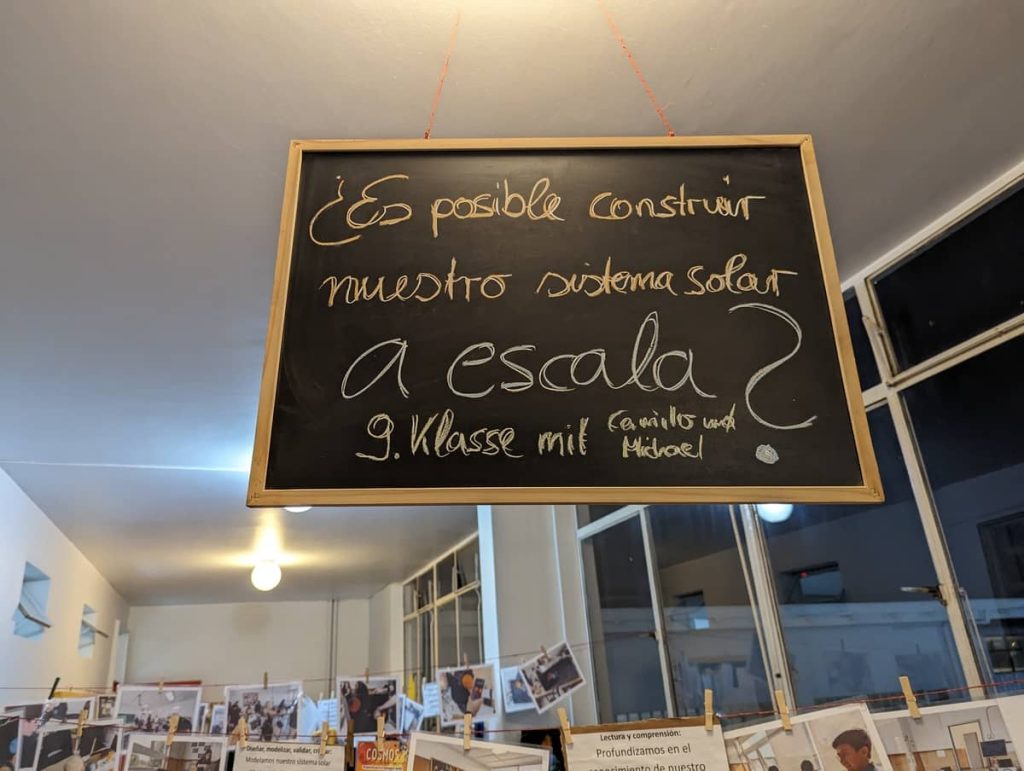 ¿Es posible construir
nuestro sistema solar
a escala?
9. Klasse mit Camillo und
Michael
Diseñar, modelizar, validar,
Modelamos nuestro sistema solar
COSMOS
Lectura y comprensión:
Profundizamos en el
conocimiento de nuestro